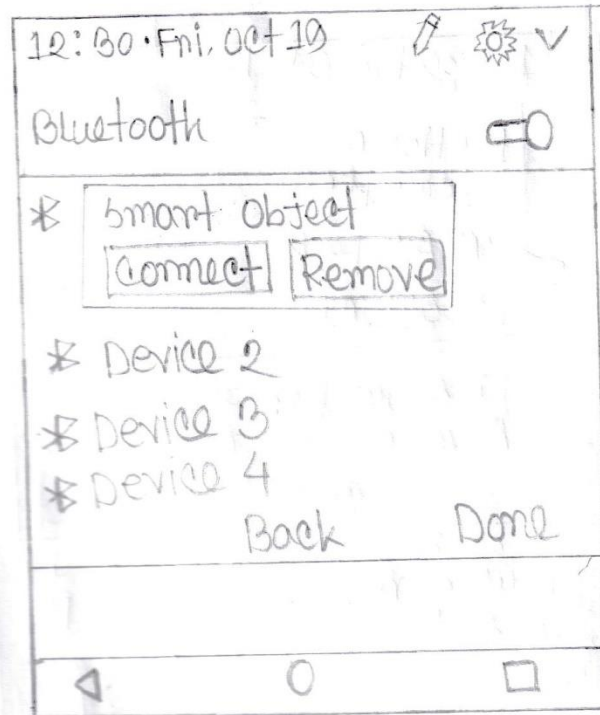 12:30 • Fri, Oct 19
Bluetooth
Smart Object
Connect Remove
Device 2
Device 3
Device 4
Back Done